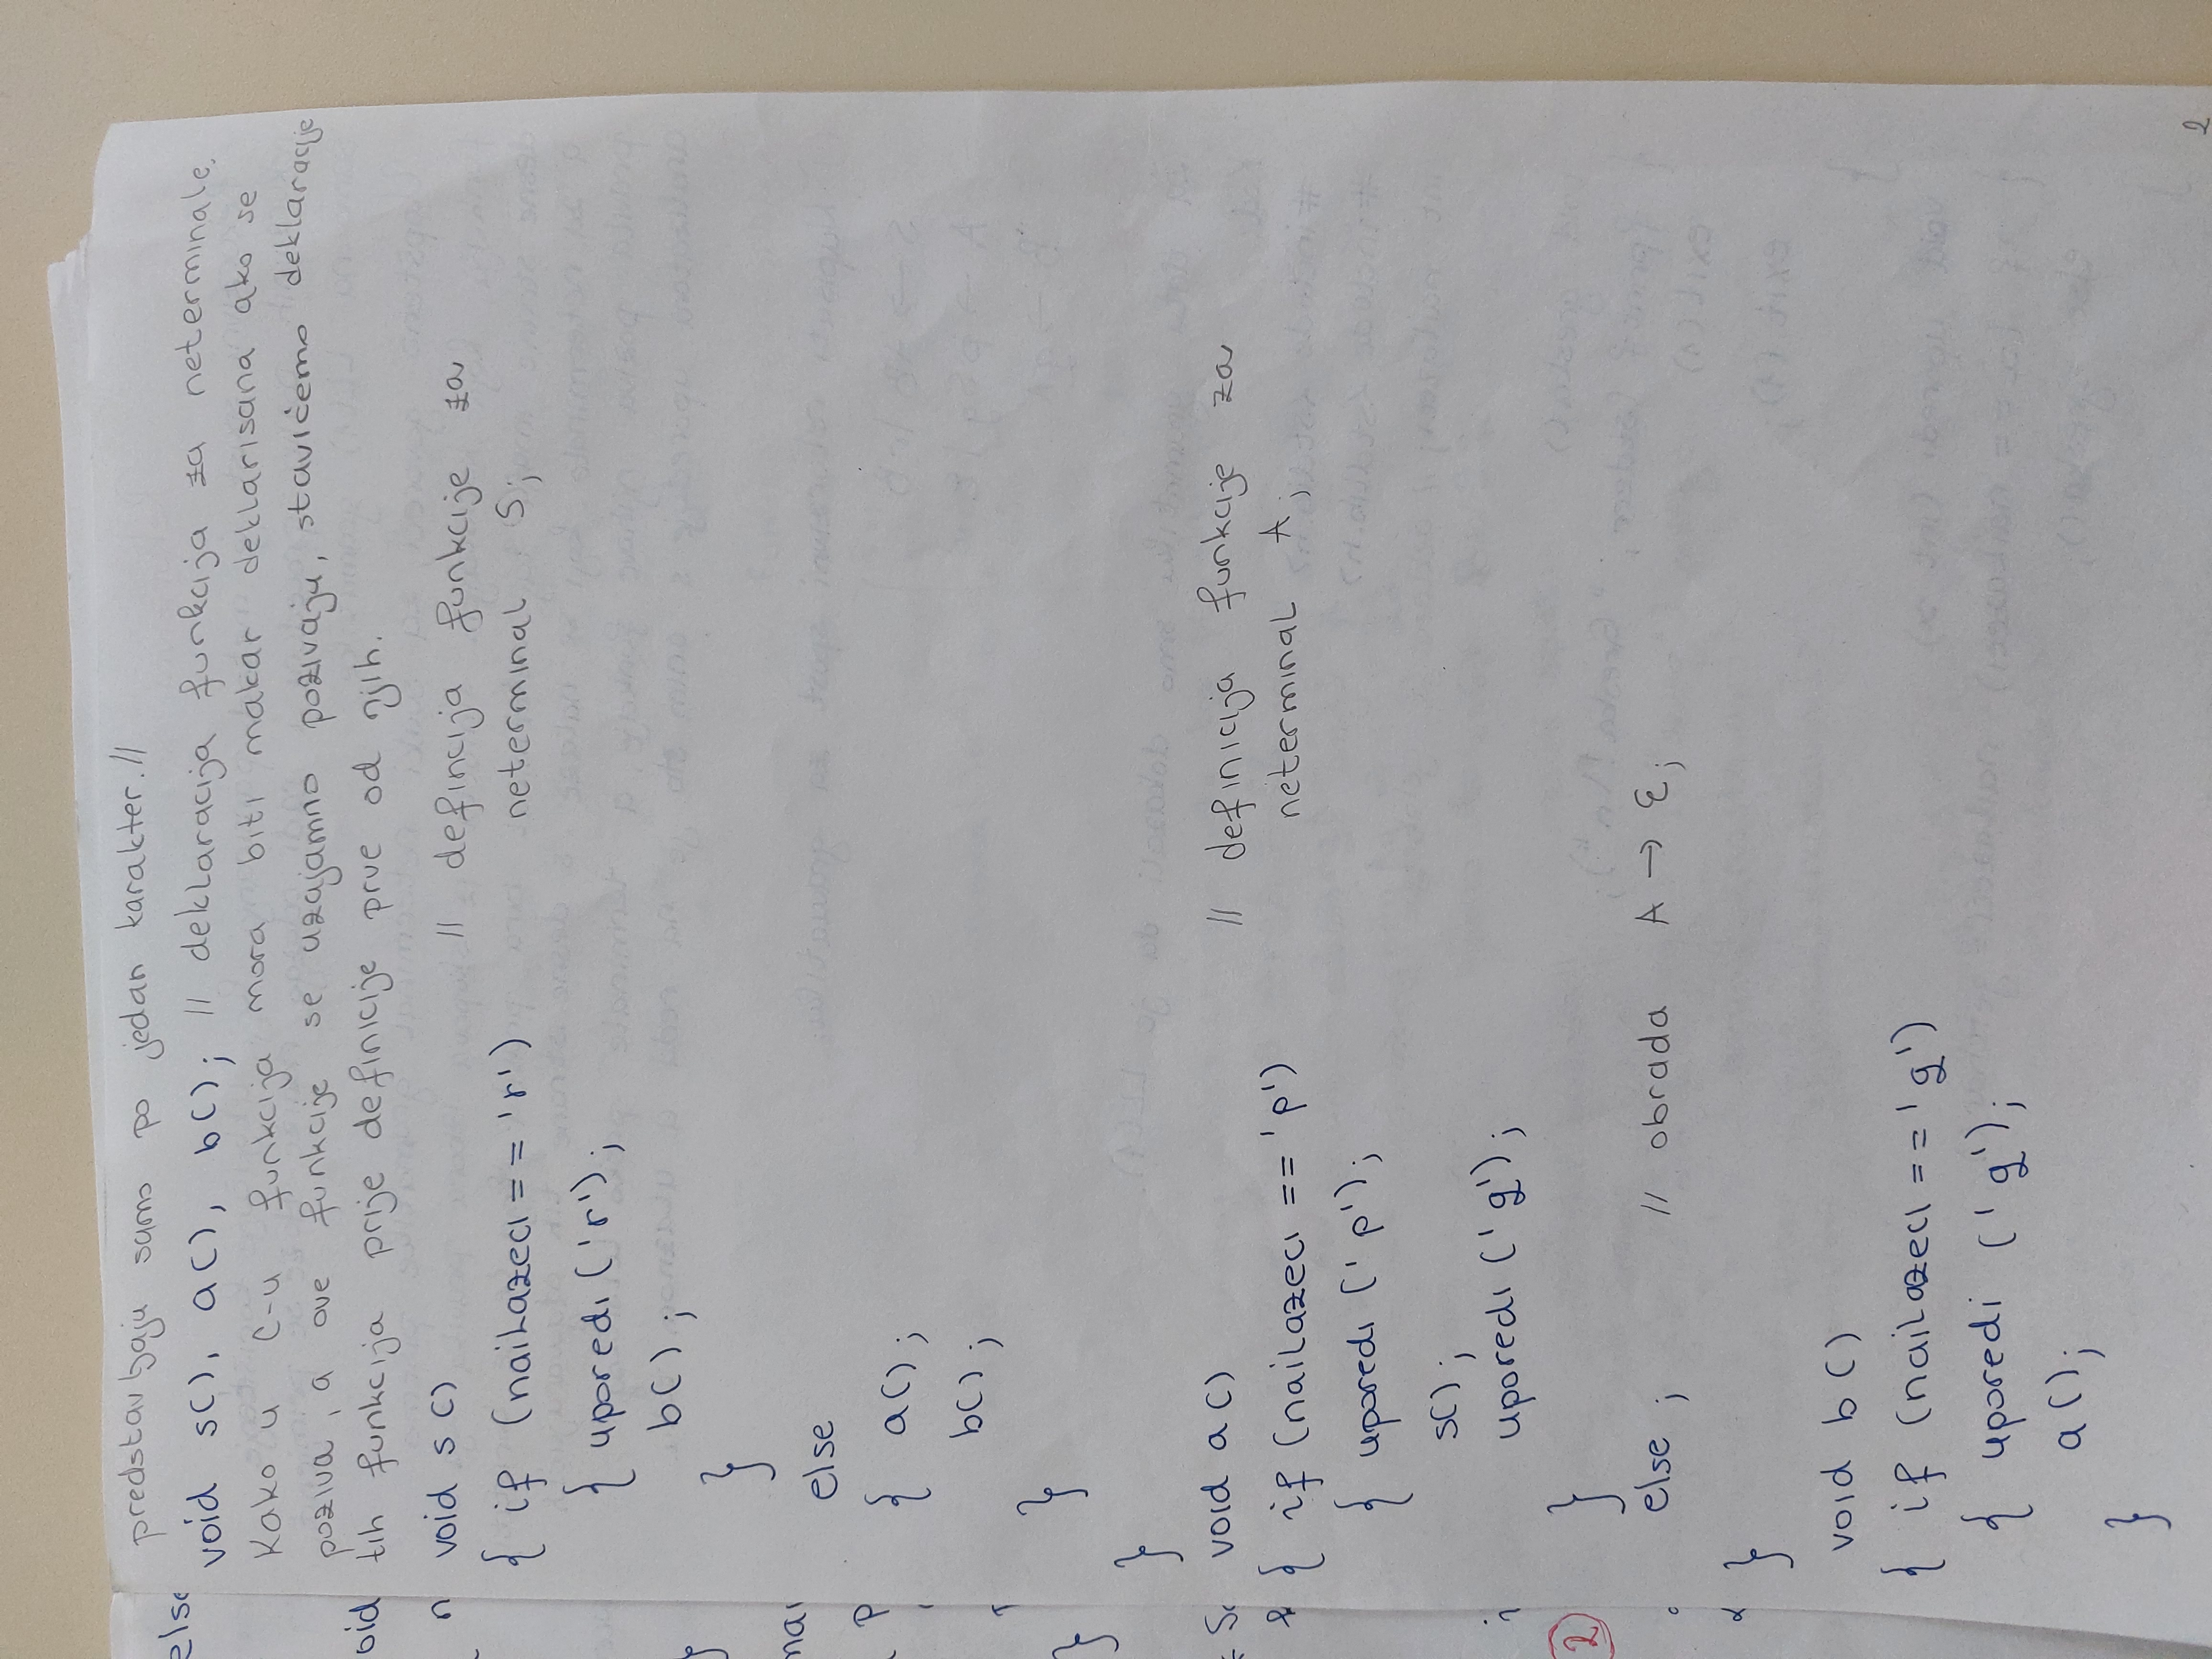 predstavljaju samo po jedan karakter.//
void s(), a(), b(); // deklaracija funkcija za neterminale.
Kako u C-u funkcija mora biti makar deklarisana ako se
poziva, a ove funkcije se uzajamno pozivaju, stavićemo deklaracije
tih funkcija prije definicije prve od njih.
void s() // defincija funkcije za
{ if (nailazeci == 'r') neterminal S;
{ uporedi ('r');
b();
}
else
{ a();
b();
}
}
void a() // definicija funkcije za
{ if (nailazeci == 'p') neterminal A;
{ uporedi ('p');
s();
uporedi ('q');
}
else ; // obrada A → ε;
}
void b()
{ if (nailazeci == 'q')
{ uporedi ('q');
a();
}
2
else
oid
n
nai
p
}
2